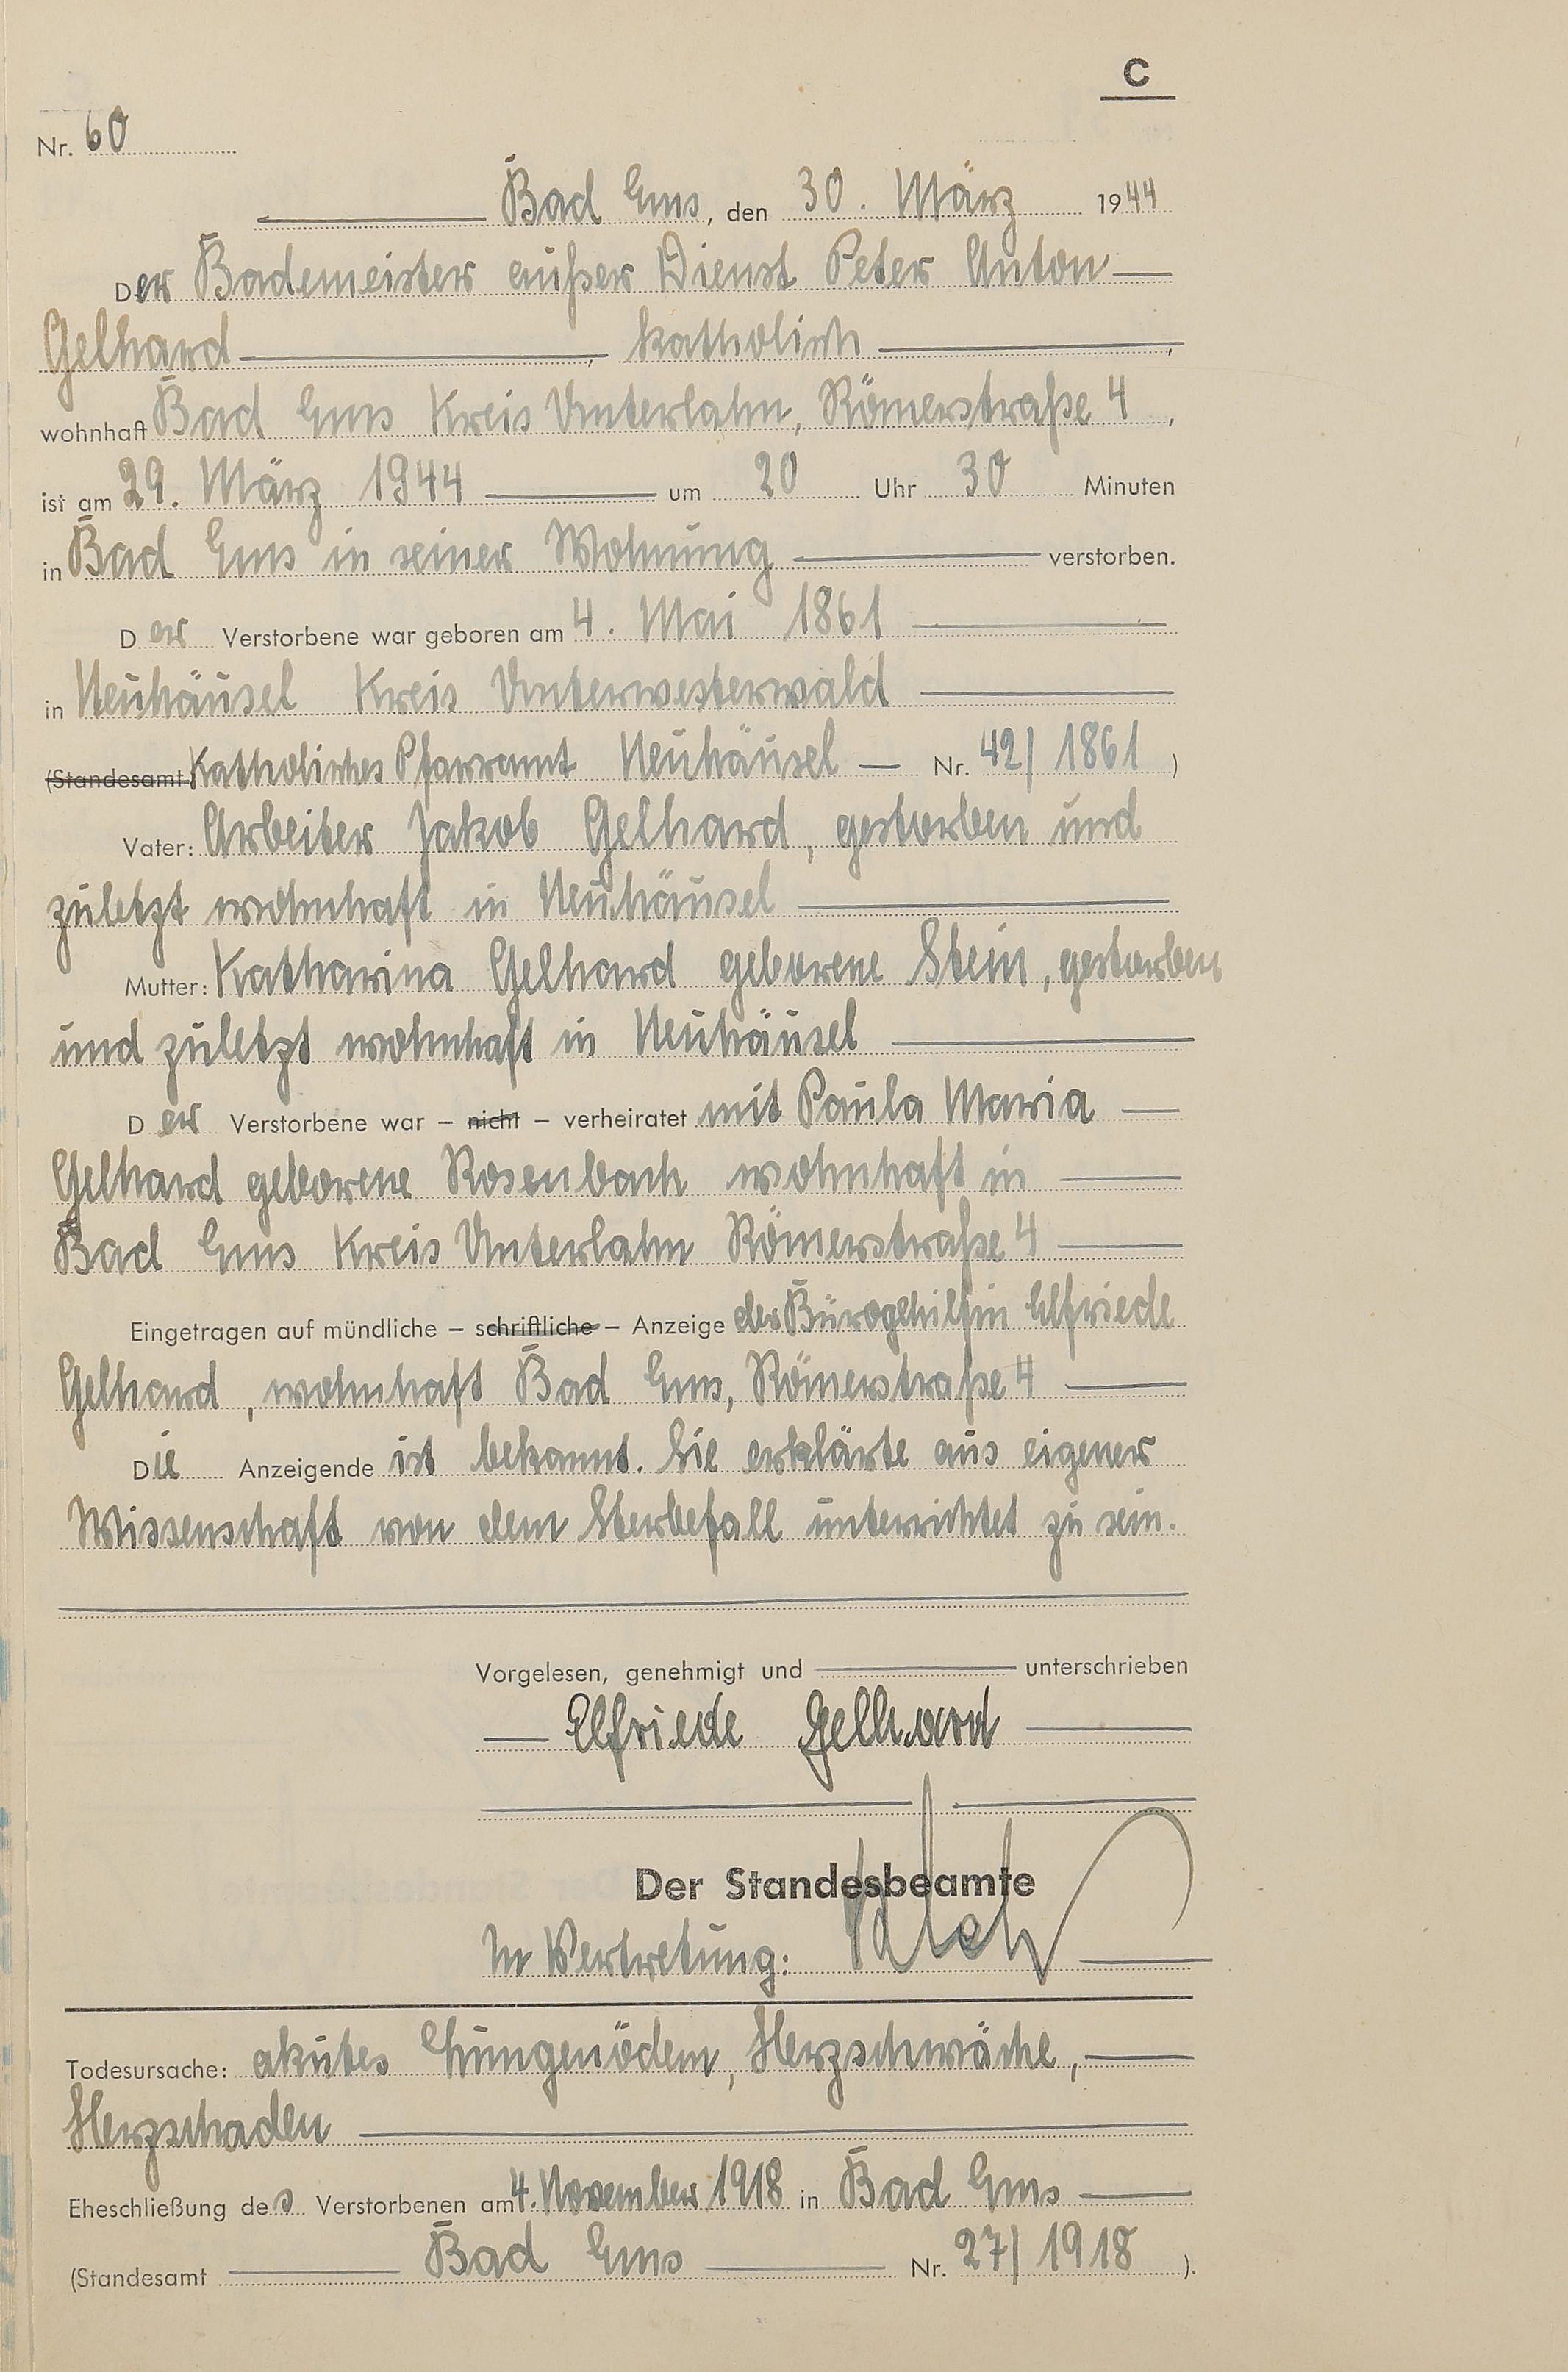 C
Nr. 60
Bad Ems, den 30. März 1944
Der Bademeister außer Dienst Peter Anton
Gelhard, katholisch,
wohnhaft Bad Ems Kreis Unterlahn, Römerstraße 4,
ist am 29. März 1944 um 20 Uhr 30 Minuten
in Bad Ems in seiner Wohnung verstorben.
Der Verstorbene war geboren am 4. Mai 1861
in Neuhäusel Kreis Unterwesterwald
(Standesamt Katholisches Pfarramt Neuhäusel — Nr. 42/1861)
Vater: Arbeiter Jakob Gelhard, gestorben und
zuletzt wohnhaft in Neuhäusel
Mutter: Katharina Gelhard geborene Stein, gestorben
und zuletzt wohnhaft in Neuhäusel
Der Verstorbene war – nicht – verheiratet mit Paula Maria
Gelhard geborene Rosenbach wohnhaft in
Bad Ems Kreis Unterlahn Römerstraße 4
Eingetragen auf mündliche – schriftliche – Anzeige der Bürogehilfin Elfriede
Gelhard, wohnhaft Bad Ems, Römerstraße 4
Die Anzeigende ist bekannt. Sie erklärte aus eigener
Wissenschaft von dem Sterbefall unterrichtet zu sein.
Vorgelesen, genehmigt und unterschrieben
Elfriede Gelhard
Der Standesbeamte
In Vertretung:
Todesursache: akutes Lungenödem, Herzschwäche,
Herzschaden
Eheschließung des Verstorbenen am 4. November 1918 in Bad Ems
(Standesamt Bad Ems Nr. 27/1918).